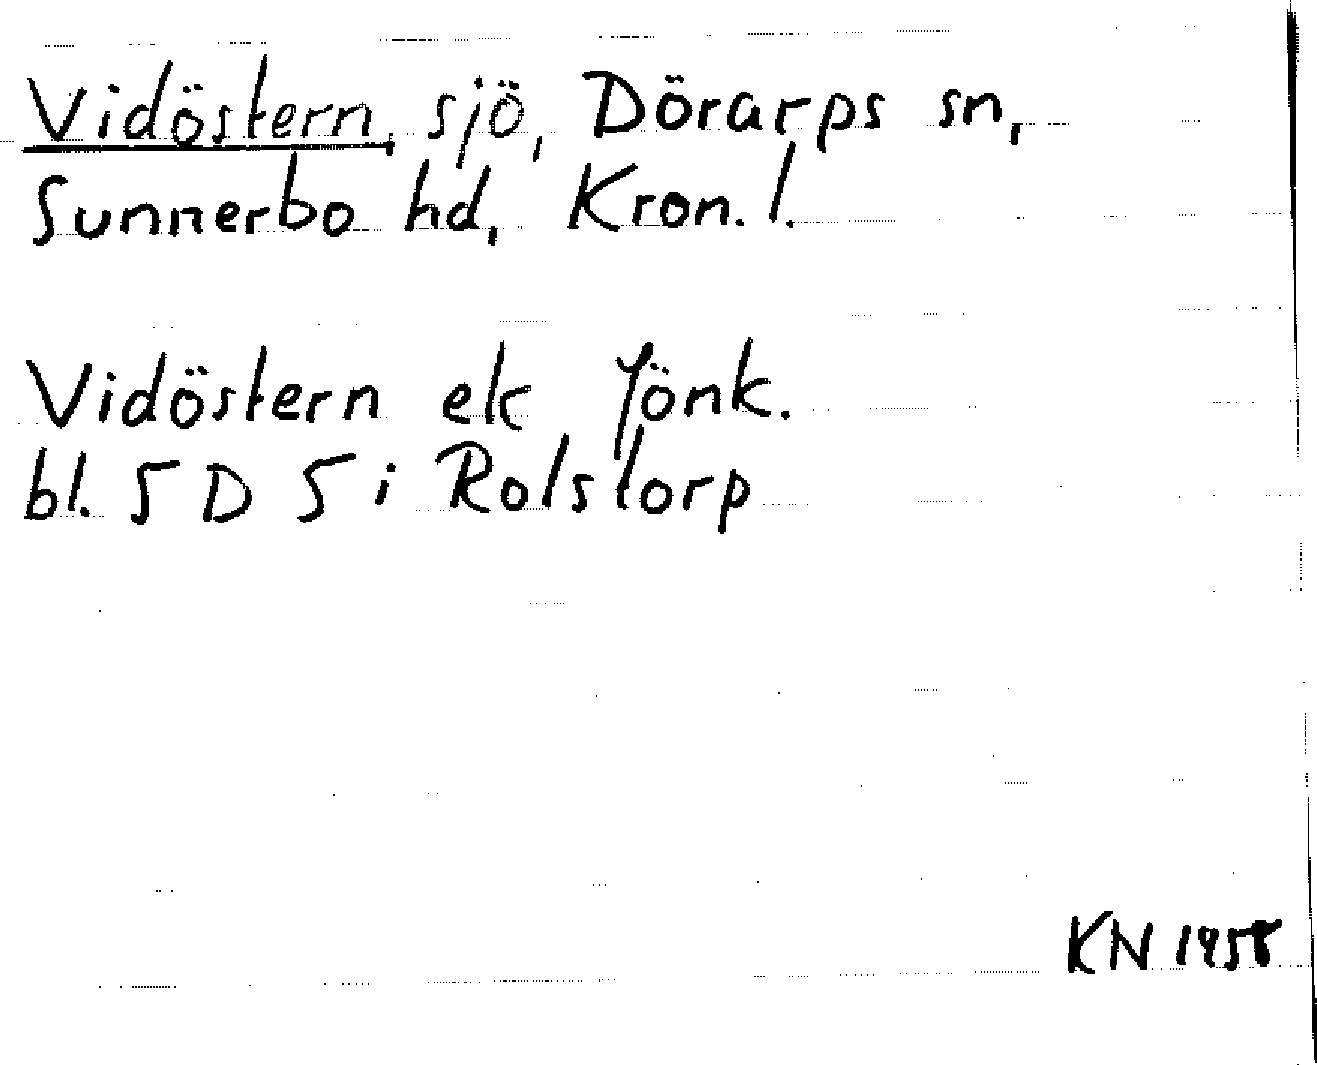 Vidöstern, sjö, Dörarps sn,
Sunnerbo hd, Kron. l.
Vidöstern ek Jönk.
bl. 5 D 5 i Rolstorp
KN 1958